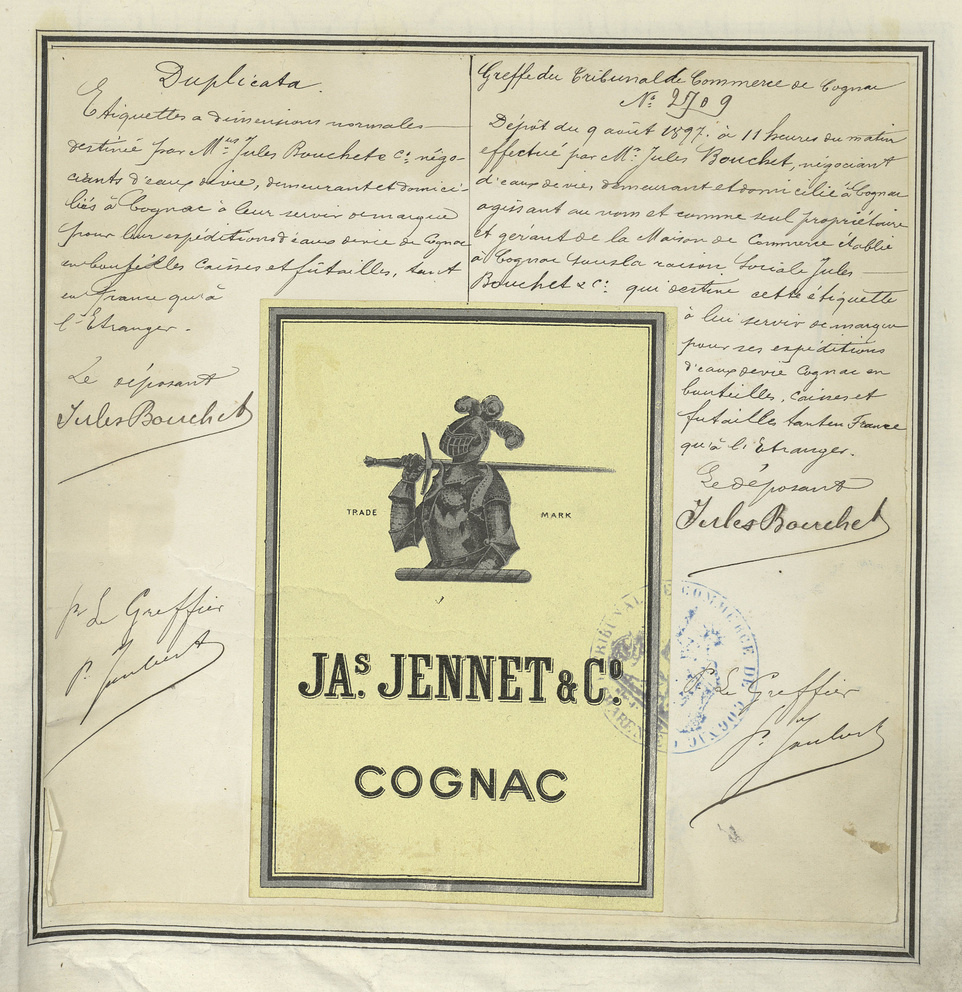 Duplicata.
Etiquettes a dimensions normales
destinée par M.rs Jules Bouchet & C.o négo-
ciants d'eaux de vie, demeurant et domici-
liés à Cognac à leur servir de marque
pour leur expéditions d'eaux de vie de Cognac
en bouteilles caisses et fûtailles, tant
en France qu'à
l'Etranger.
Le déposant
Jules Bouchet
pr Le Greffier
Greffe du Tribunal de Commerce de Cognac
N.o 2709
Dépôt du 9 août 1897. à 11 heures du matin
effectué par M.r Jules Bouchet, négociant
d'eaux de vie, demeurant et domicilié à Cognac
agissant au nom et comme seul propriétaire
et gérant de la Maison de Commerce établie
à Cognac sous la raison sociale Jules
Bouchet & C.o qui destine cette étiquette
à lui servir de marque
pour ses expéditions
d'eaux de vie Cognac en
bouteilles, caisses et
futailles tant en France
qu'à l'Etranger.
Le déposant
Jules Bouchet
pr Le Greffier
TRIBUNAL DE COMMERCE DE COGNAC
TRADE MARK
JAS. JENNET & Co.
COGNAC